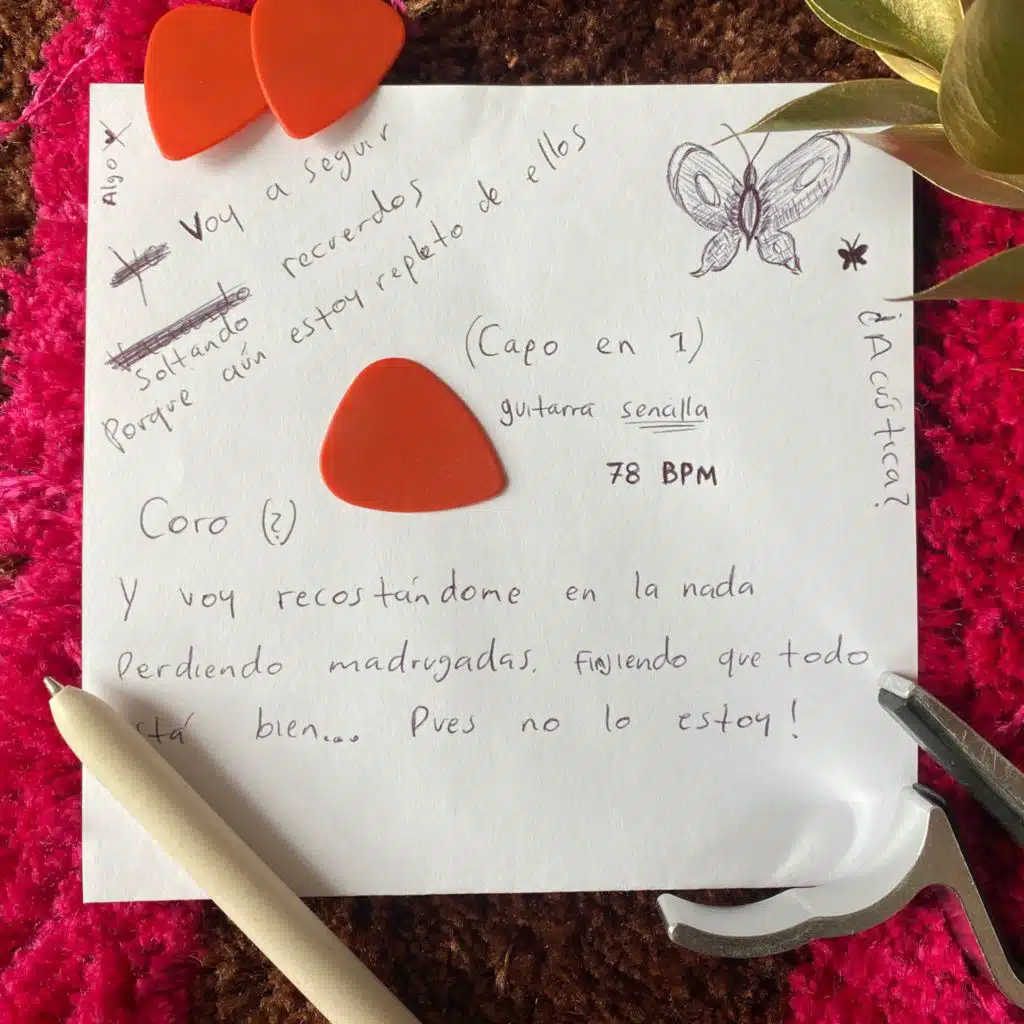 Algo
Voy a seguir
Yo
Soltando recuerdos
Porque aún estoy repleto de ellos
(Capo en 1)
guitarra sencilla
78 BPM
¿Acústica?
Coro (?)
Y voy recostándome en la nada
Perdiendo madrugadas. Finjiendo que todo
stá bien... Pues no lo estoy!